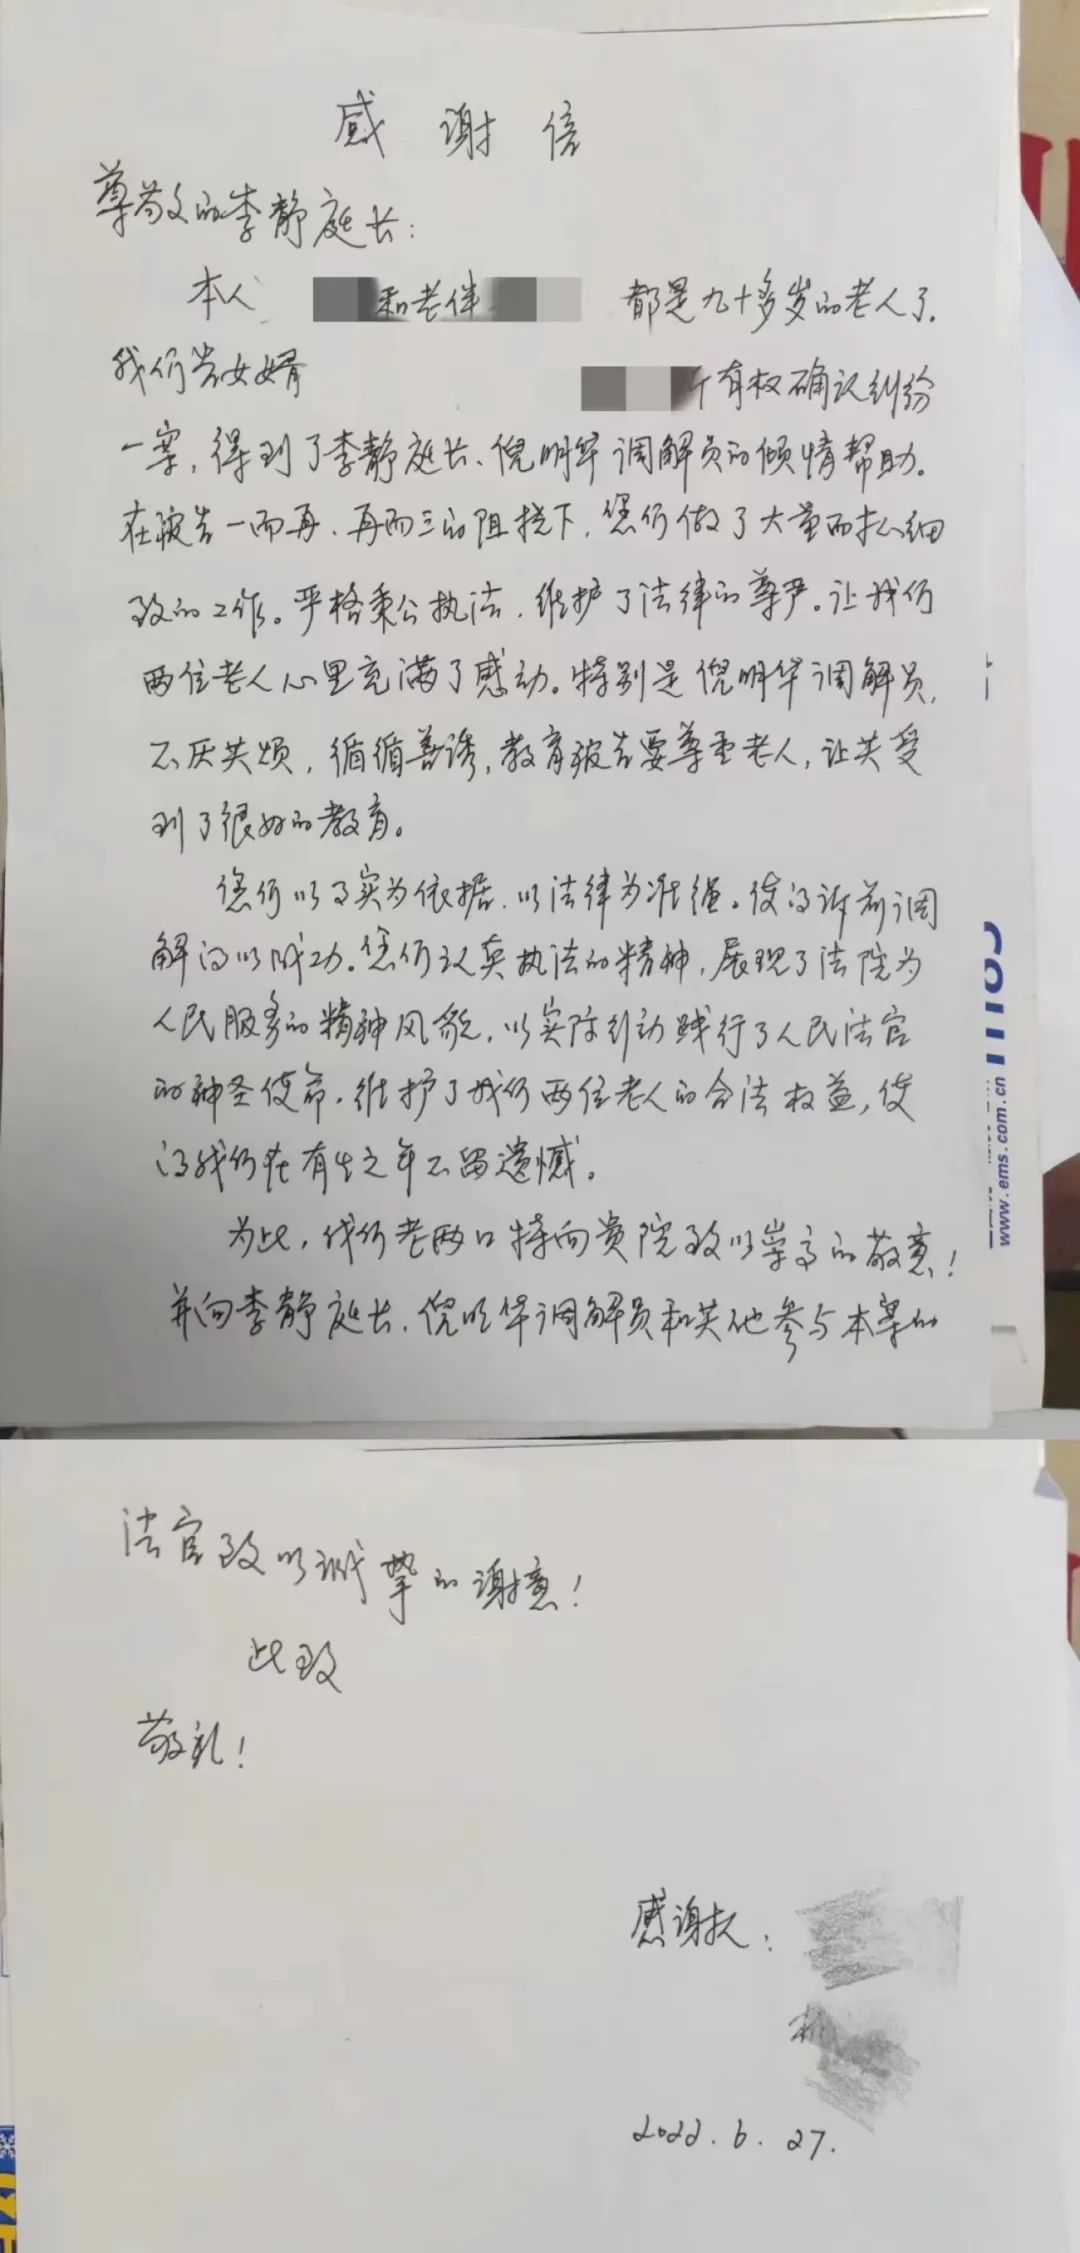 感谢信
尊敬的李静庭长：
本人 和老伴 都是九十多岁的老人了.
我们告女婿 有权确认纠纷
一案，得到了李静庭长、倪明华调解员的倾情帮助。
在被告一而再、再而三的阻挠下，您们做了大量而扎细
致的工作。严格秉公执法，维护了法律的尊严。让我们
两位老人心里充满了感动。特别是倪明华调解员，
不厌其烦，循循善诱，教育被告要尊重老人，让其受
到了很好的教育。
您们以事实为依据，以法律为准绳。使得诉前调
解得以成功。您们认真执法的精神，展现了法院为
人民服务的精神风貌，以实际行动践行了人民法官
的神圣使命，维护了我们两位老人的合法权益，使
得我们在有生之年不留遗憾。
为此，我们老两口特向贵院致以崇高的敬意！
并向李静庭长、倪明华调解员和其他参与本案的
法官致以诚挚的谢意！
此致
敬礼！
感谢人：
2022.6.27.
www.ems.com.cn